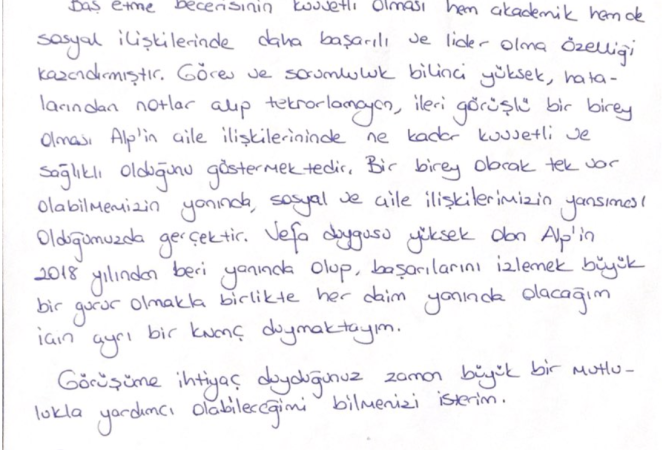 Baş etme becerisinin kuvvetli olması hem akademik hem de
sosyal ilişkilerinde daha başarılı ve lider olma özelliği
kazandırmıştır. Görev ve sorumluluk bilinci yüksek, hata-
larından notlar alıp tekrarlamayan, ileri görüşlü bir birey
olması Alp'in aile ilişkilerininde ne kadar kuvvetli ve
sağlıklı olduğunu göstermektedir. Bir birey olarak tek var
olabilmemizin yanında, sosyal ve aile ilişkilerimizin yansıması
olduğumuzda gerçektir. Vefa duygusu yüksek olan Alp'in
2018 yılından beri yanında olup, başarılarını izlemek büyük
bir gurur olmakla birlikte her daim yanında olacağım
için ayrı bir kıvanç duymaktayım.
Görüşüme ihtiyaç duyduğunuz zaman büyük bir mutlu-
lukla yardımcı olabileceğimi bilmenizi isterim.